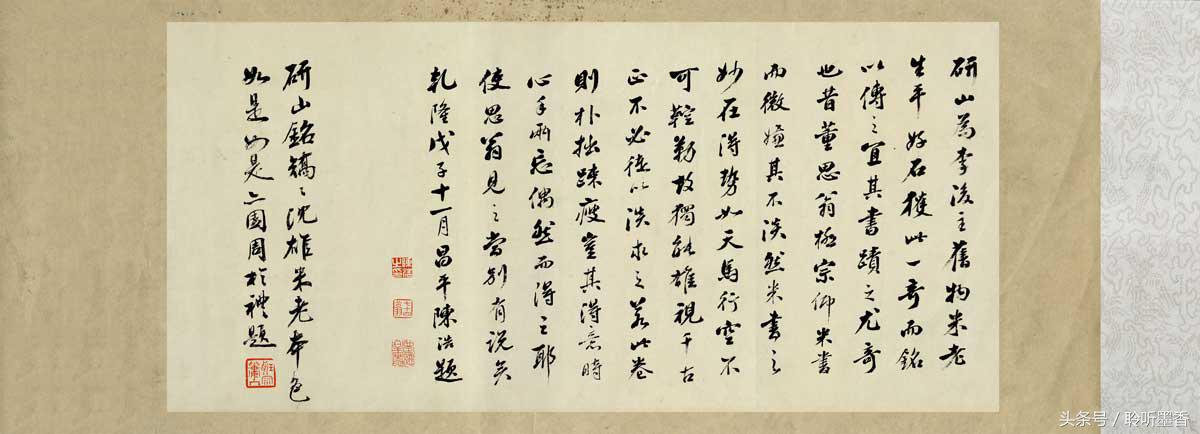 研山為李後主舊物米老
生平好石獲此一奇而銘
以傳之宜其書蹟之尤奇
也昔董思翁極宗仰米書
而微嫌其不淡然米書之
妙在得勢如天馬行空不
可鞚勒故獨能雄視千古
正不必徒以淡求之若此卷
則朴拙疎瘦豈其得意時
心手兩忘偶然而得之耶
使思翁見之當別有說矣
乾隆戊子十一月昌平陳浩題
研山銘矯〻沈雄米老本色
如是如是亦園周於禮題
头条号 / 聆听墨香